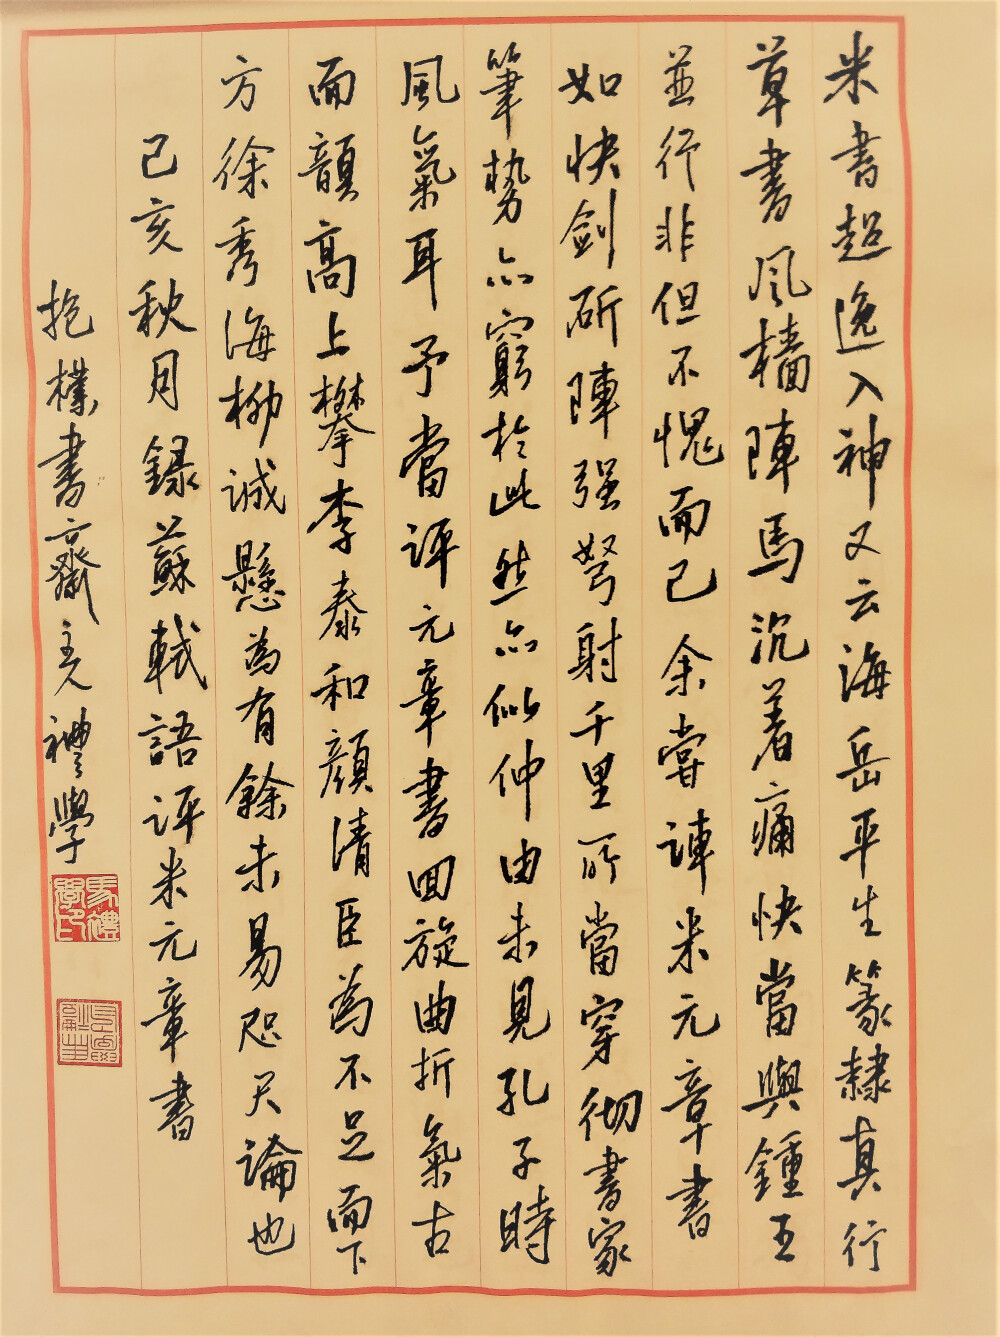 米書超逸入神又云海岳平生篆隸真行
草書風檣陣馬沉著痛快當與鍾王
並行非但不愧而已余嘗評米元章書
如快劍斫陣强弩射千里所當穿彻書家
筆勢亦窮於此然亦似仲由未見孔子時
風氣耳予當評元章書回旋曲折氣古
而韻高上攀李泰和顏清臣為不足而下
方徐秀海柳誠懸為有餘未易咫尺論也
己亥秋月録蘇軾語評米元章書
抱樸書齋主人禮學
馬禮學印